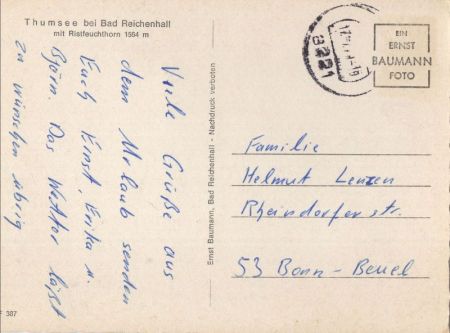 Thumsee bei Bad Reichenhall
mit Ristfeuchthorn 1564 m
Viele Grüße aus
dem Urlaub senden
Euch Ernst, Erika u.
Björn. Das Wetter läßt
zu wünschen übrig
Ernst Baumann, Bad Reichenhall - Nachdruck verboten
8221
EIN
ERNST
BAUMANN
FOTO
Familie
Helmut Lenzen
Rheindorferstr.
53 Bonn-Beuel
F 387